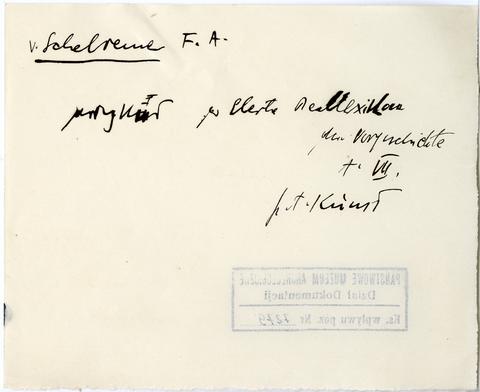 v. Scheltema F. A.
artykuł w Eberta Reallexikon
der Vorgeschichte
t. VII,
p. t. Kunst
PAŃSTWOWE MUZEUM ARCHEOLOGICZNE
Dział Dokumentacji
Ks. wpływu poz. Nr